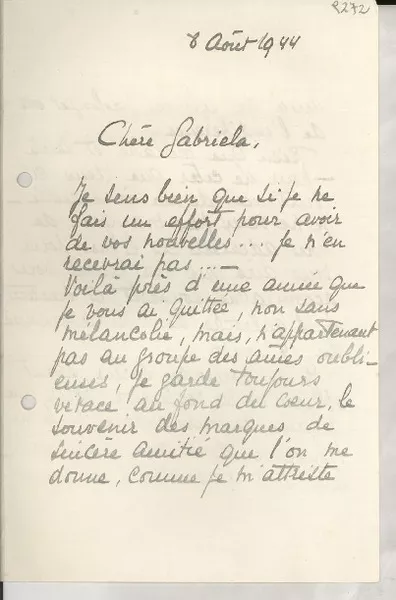 8272
8 Août 1944
Chère Gabriela,
Je sens bien que si je ne
fais un effort pour avoir
de vos nouvelles... je n'en
recevrai pas...—
Voilà près d'une année que
je vous ai quittée, non sans
mélancolie, mais, n'appartenant
pas au groupe des âmes oubli-
euses, je garde toujours
vivace au fond du cœur, le
souvenir des marques de
sincère amitié que l'on me
donne, comme je m'attriste